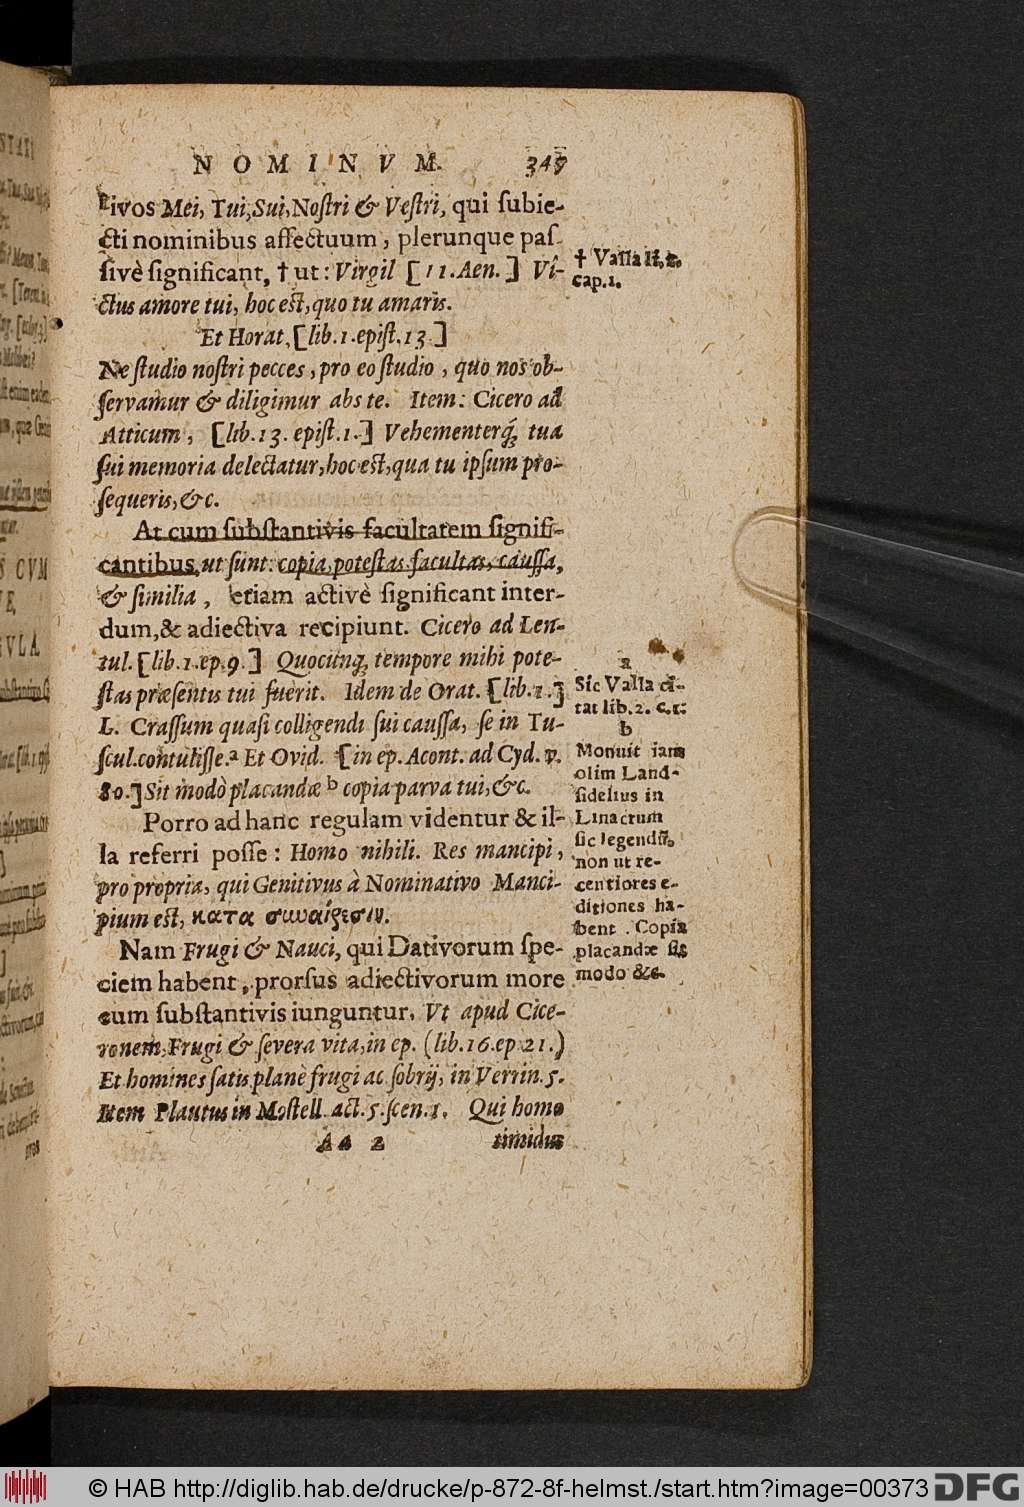 NOMINVM. 347
tivos Mei, Tui, Sui, Nostri & Vestri, qui subie-
cti nominibus affectuum, plerunque pas-
sivè significant, † ut: Virgil [11. Aen.] Vi-
ctus amore tui, hoc est, quo tu amaris.
Et Horat. [lib. 1. epist. 13.]
Ne studio nostri pecces, pro eo studio, quo nos ob-
servamur & diligimur abs te. Item: Cicero ad
Atticum, [lib. 13. epist. 1.] Vehementerq́; tua
sui memoria delectatur, hoc est, qua tu ipsum pro-
sequeris, &c.
At cum substantivis facultatem signifi-
cantibus, ut sunt: copia, potestas, facultas, caussa,
& similia, etiam activè significant inter-
dum, & adiectiva recipiunt. Cicero ad Len-
tul. [lib. 1. ep. 9.] Quocunq; tempore mihi pote-
stas præsentis tui fuerit. Idem de Orat. [lib. 1.]
L. Crassum quasi colligendi sui caussa, se in Tu-
scul. contulisse. a Et Ovid. [in ep. Acont. ad Cyd. v.
80.] Sit modò placandæ b copia parva tui, &c.
Porro ad hanc regulam videntur & il-
la referri posse: Homo nihili. Res mancipi,
pro propria, qui Genitivus à Nominativo Manci-
pium est, κατα συναίρεσιν.
Nam Frugi & Nauci, qui Dativorum spe-
ciem habent, prorsus adiectivorum more
cum substantivis iunguntur. Vt apud Cice-
ronem, Frugi & severa vita, in ep. (lib. 16. ep. 21.)
Et homines satis planè frugi ac sobrij, in Verrin. 5.
Item Plautus in Mostell. act. 5. scen. 1. Qui homo
Aa 2 timidus
† Valla li. 2.
cap. 1.
a
Sic Valla ci-
tat lib. 2. c. 1.
b
Monuit iam
olim Land-
sidelius in
Linacrum
sic legendũ,
non ut re-
centiores e-
ditiones ha-
bent. Copia
placandæ sit
modo &c.
© HAB http://diglib.hab.de/drucke/p-872-8f-helmst./start.htm?image=00373
DFG